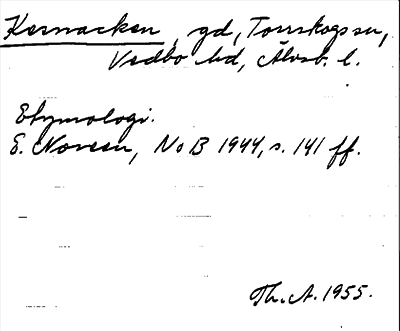 Kernacken, gd, Torrskogs sn,
Vedbo hd, Älvsb. l.
Etymologi.
E. Noreen, NoB 1944, s. 141 ff.
Th. A. 1955.